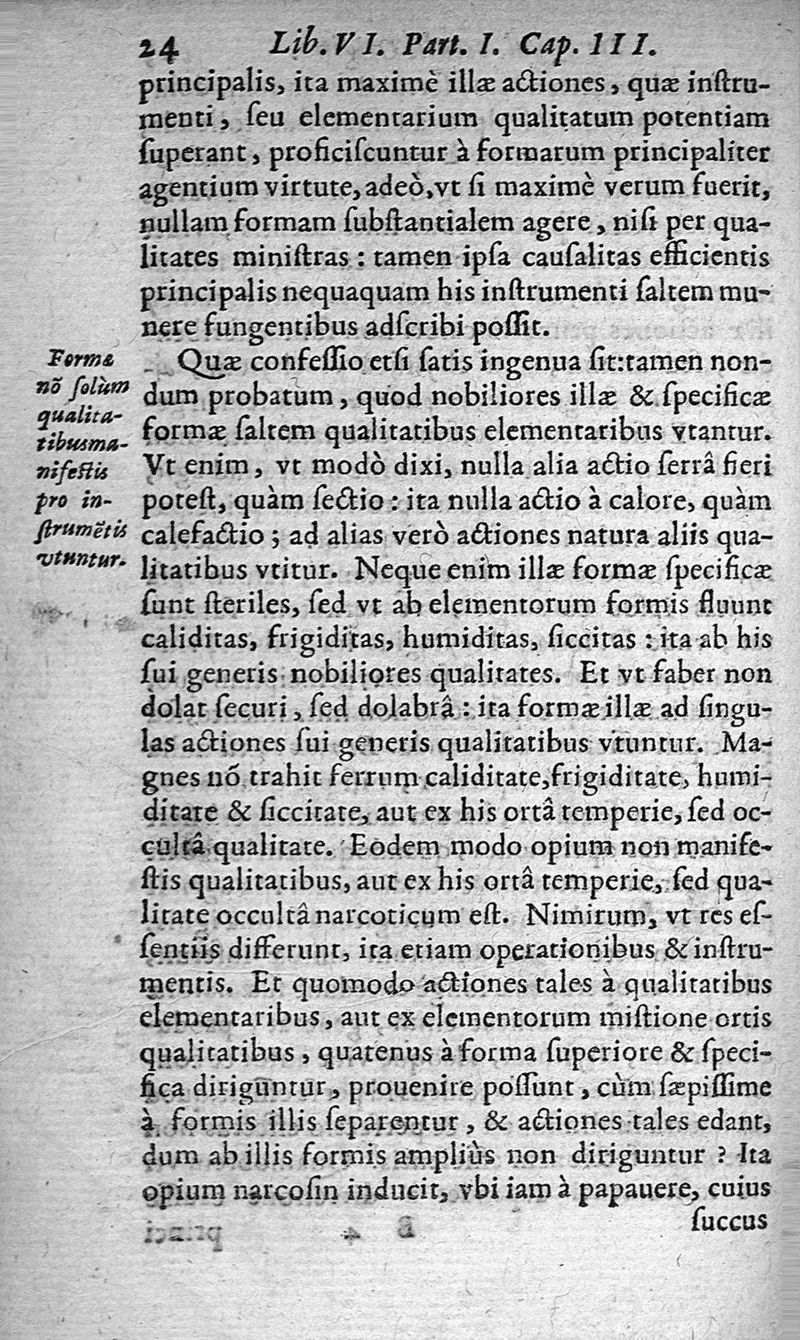 24 Lib. VI. Part. I. Cap. III.
principalis, ita maximè illæ actiones, quæ inſtru-
menti, ſeu elementarium qualitatum potentiam
ſuperant, proficiſcuntur à formarum principaliter
agentium virtute, adeò, vt ſi maximè verum fuerit,
nullam formam ſubſtantialem agere, niſi per qua-
litates miniſtras : tamen ipſa cauſalitas efficientis
principalis nequaquam his inſtrumenti ſaltem mu-
nere fungentibus adſcribi poſſit.
Quæ confeſſio etſi ſatis ingenua ſit: tamen non-
dum probatum, quod nobiliores illæ & ſpecificæ
formæ ſaltem qualitatibus elementaribus vtantur.
Vt enim, vt modò dixi, nulla alia actio ſerrâ fieri
poteſt, quàm ſectio : ita nulla actio à calore, quàm
calefactio ; ad alias verò actiones natura aliis qua-
litatibus vtitur. Neque enim illæ formæ ſpecificæ
ſunt ſteriles, ſed vt ab elementorum formis fluunt
caliditas, frigiditas, humiditas, ſiccitas : ita ab his
ſui generis nobiliores qualitates. Et vt faber non
dolat ſecuri, ſed dolabrâ : ita formæ illæ ad ſingu-
las actiones ſui generis qualitatibus vtuntur. Ma-
gnes nõ trahit ferrum caliditate, frigiditate, humi-
ditate & ſiccitate, aut ex his ortâ temperie, ſed oc-
cultâ qualitate. Eodem modo opium non manife-
ſtis qualitatibus, aut ex his ortâ temperie, ſed qua-
litate occultâ narcoticum eſt. Nimirum, vt res eſ-
ſentiis differunt, ita etiam operationibus & inſtru-
mentis. Et quomodo actiones tales à qualitatibus
elementaribus, aut ex elementorum miſtione ortis
qualitatibus, quatenus à forma ſuperiore & ſpeci-
fica diriguntur, prouenire poſſunt, cùm ſæpiſſime
à formis illis ſeparentur, & actiones tales edant,
dum ab illis formis ampliùs non diriguntur ? Ita
opium narcoſin inducit, vbi iam à papauere, cuius
ſuccus
Formæ
nõ ſolùm
qualita-
tibus ma-
nifeſtis
pro in-
ſtrumẽtis
vtuntur.